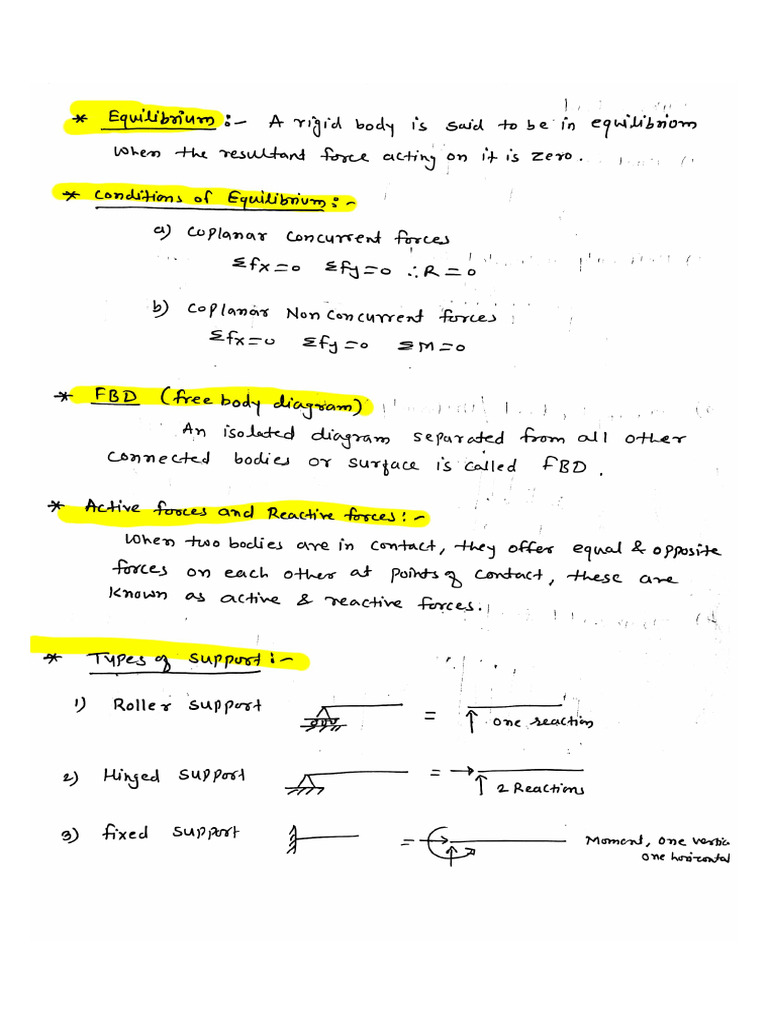 * Equilibrium :- A rigid body is said to be in equilibriom
when the resultant force acting on it is zero.
* Conditions of Equilibrium :-
a) Coplanar Concurrent forces
Σfx=0 Σfy=0 ∴R=0
b) Coplanar Non Concurrent forces
Σfx=0 Σfy=0 ΣM=0
* FBD (free body diagram)
An isolated diagram separated from all other
connected bodies or surface is called FBD.
* Active forces and Reactive forces :-
When two bodies are in contact, they offer equal & opposite
forces on each other at points of contact, these are
known as active & reactive forces.
* Types of Support :-
1) Roller support = one reaction
2) Hinged support = 2 Reactions
3) fixed support = Moment, one vertic
one horizontal